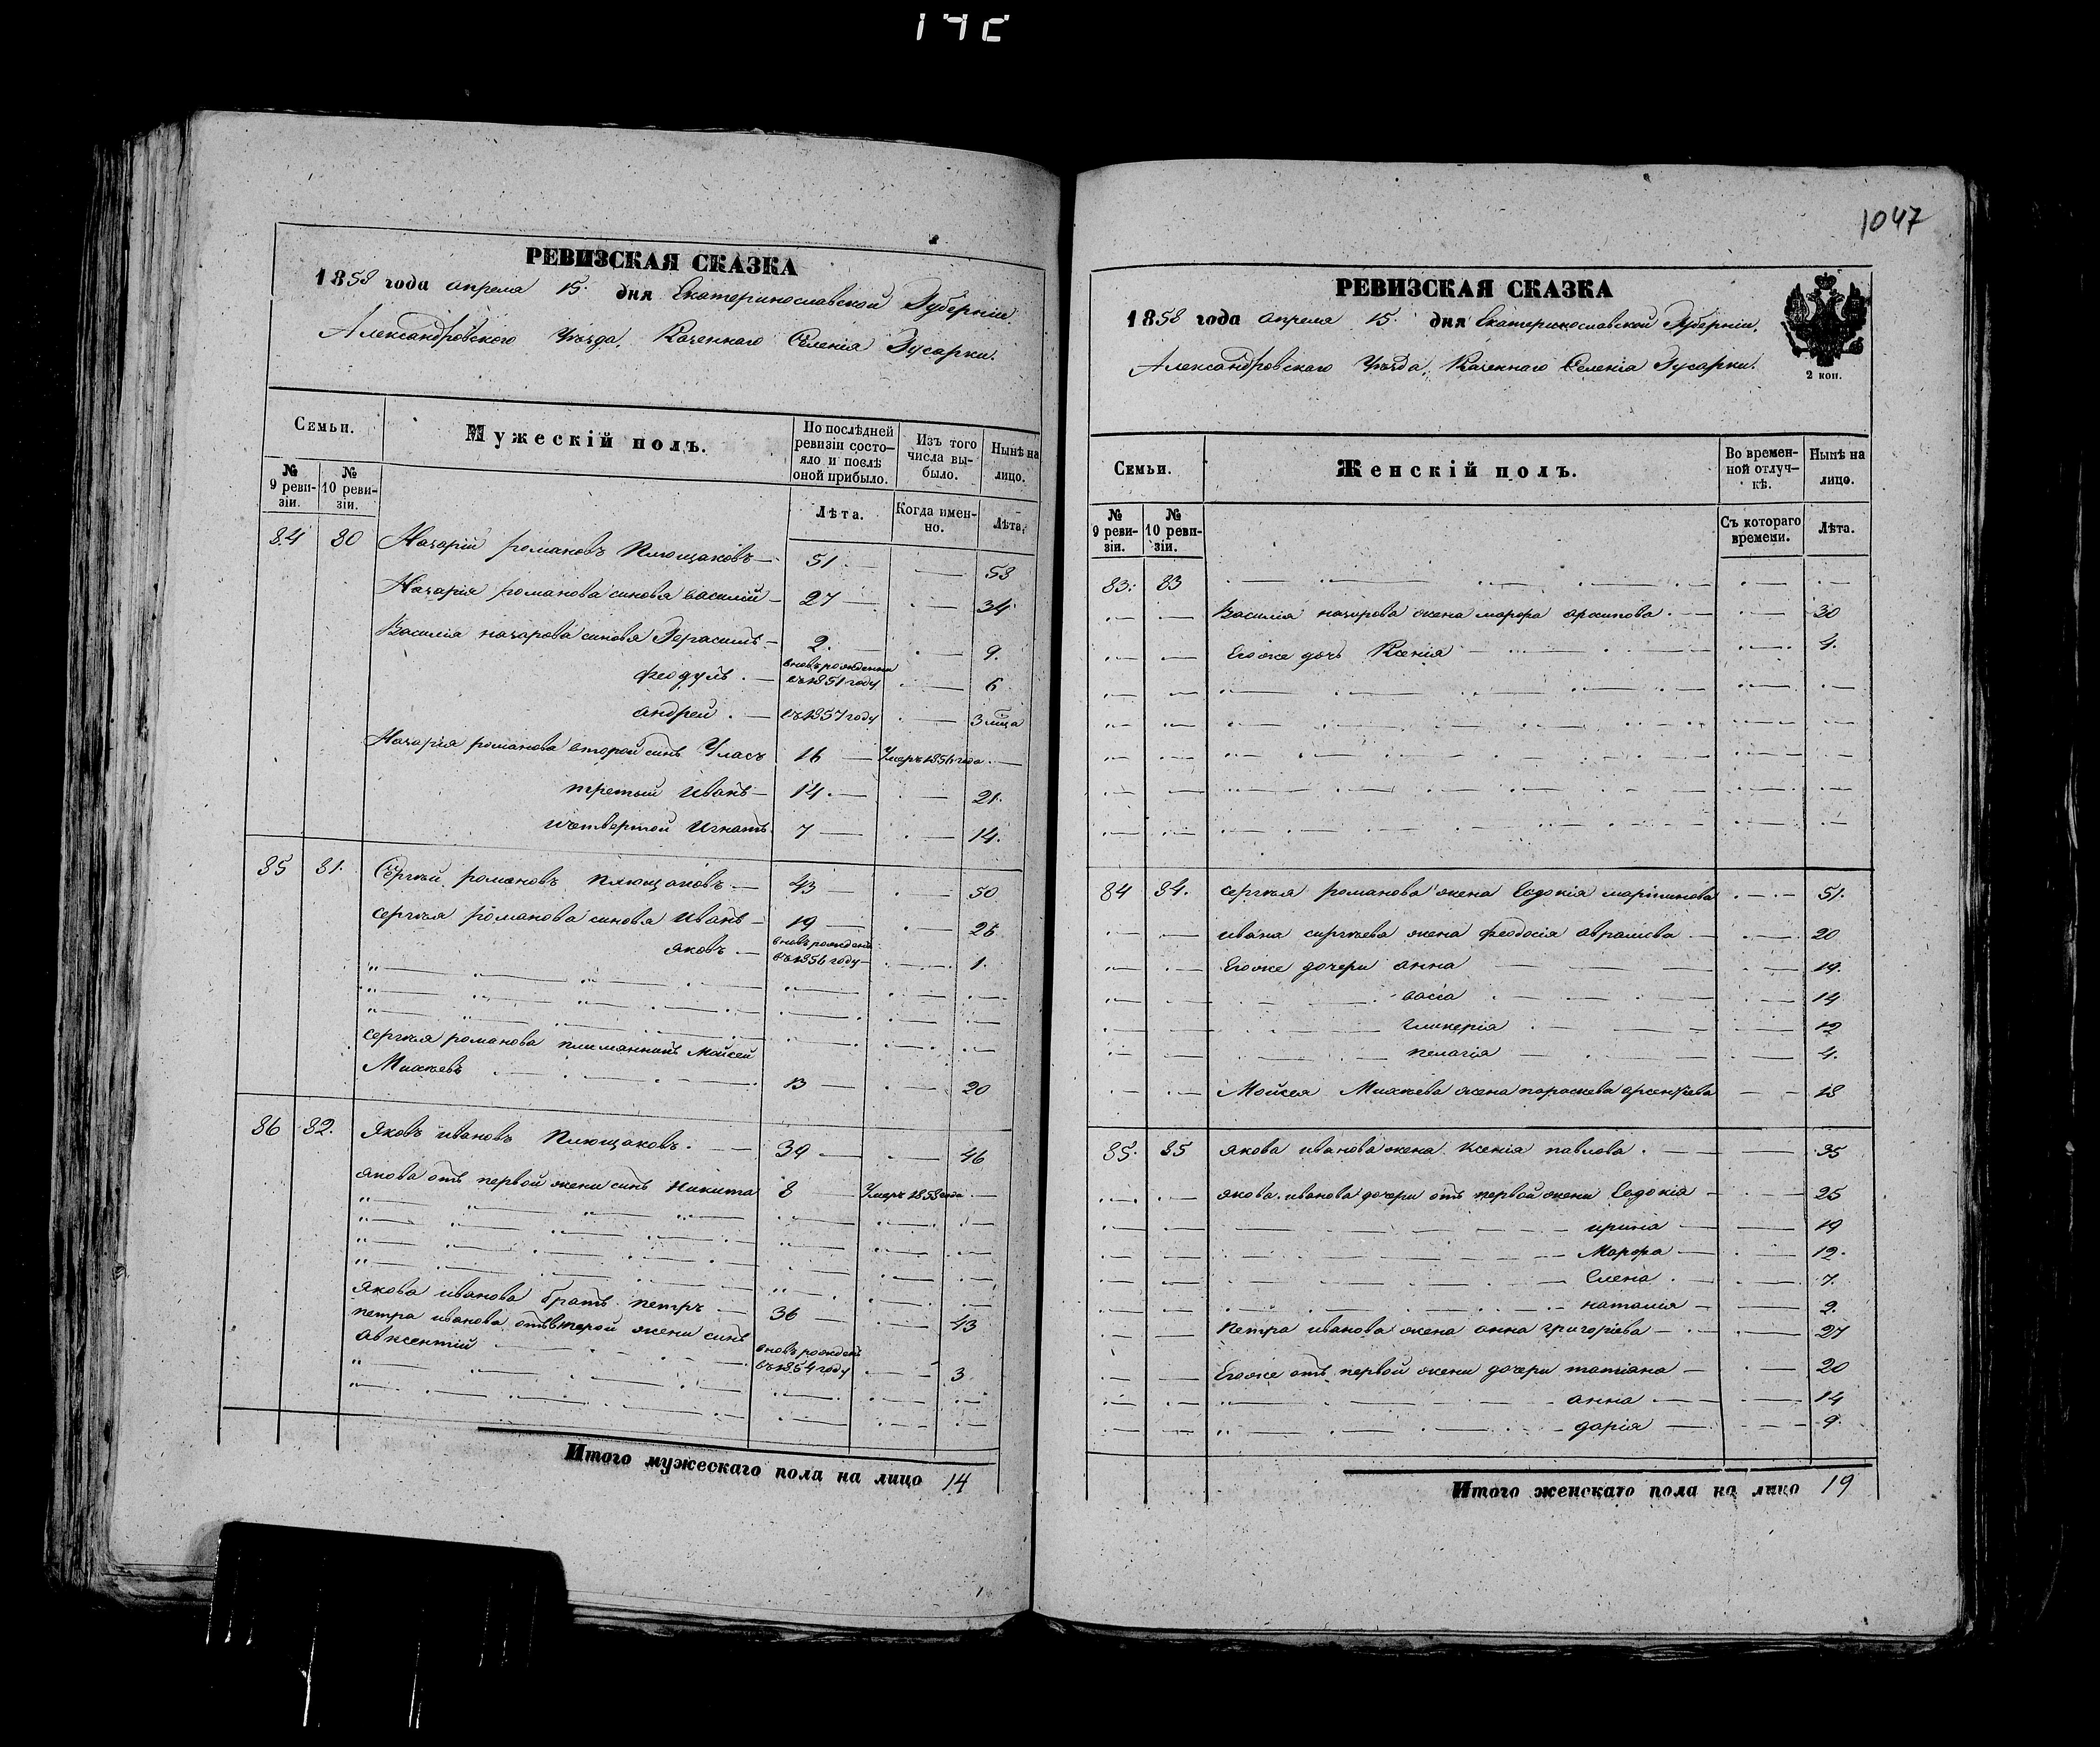 1047
РЕВИЗСКАЯ СКАЗКА
1858 года апреля 15. дня Екатеринославской Губерніи.
Александровского Уезда, Казеннаго Селенія Гусарки.
Семьи.
Мужескій полъ.
По послѣдней ревизіи состо-
яло и послѣ
оной прибыло.
Изъ того
числа вы-
было.
Нынѣ на
лицо.
№ 9 реви-зіи.
№ 10 реви-зіи.
Лѣта.
Когда имен-
но.
Лѣта.
84 80 Назарій романовъ Плющаковъ 51 58
Назарія романова синовя василій 27 34
Василія назарова синовя Герасимъ 2. 9.
вновь рожденни
феодулъ въ 1851 году 6
андрей въ 1857 году 3 мца
Назарія романова второй синъ Уласъ 16 Умеръ 1856 года
третий иванъ 14. 21.
четвертой игнатъ 7 14.
85 81. Сергѣй романовъ плющаковъ 43 50
сергѣя романова синовя иванъ 19 26
яковъ вновь рожденъ въ 1856 году 1.
сергѣя романова племянникъ Мойсей
Михѣевъ 13 20
86 82. Яковъ ивановъ Плющаковъ. 39 46
якова отъ первой жени синъ никита 8 Умеръ 1858 года
якова иванова братъ петръ 36 43
петра иванова отъ второй жени синъ
авксентій вновь рожденъ въ 1854 году 3
Итого мужескаго пола на лицо 14
РЕВИЗСКАЯ СКАЗКА
1858 года апреля 15. дня Екатеринославской Губерніи,
Александровскаго Уезда, Казеннаго Селенія Гусарки.
2 коп.
Семьи.
Женскій полъ.
Во времен-
ной отлуч-
кѣ.
Нынѣ на
лицо.
№ 9 реви-зіи.
№ 10 реви-зіи.
Съ котораго
времени.
Лѣта.
83. 83
Василія назарова жена марфа архипова 30
Егоже дочь Ксенія 4.
84 84. сергѣя романова жена Евдокія мартинова 51.
ивана сиргѣева жена феодосія аврамова 20
Егоже дочери анна 19.
васса 14
гликерія 12
пелагія 4.
Мойсея Михѣева жена параскева арсентіева 18
85. 85 якова иванова жена ксенія павлова 35
якова иванова дочери отъ первой жени Евдокія 25
ирина 19
Марфа 12.
Елена 7.
наталія 2.
Петра иванова жена анна григоріева 27
Егоже отъ первой жени дочери татіана 20
анна 14
дарія 9.
Итого женскаго пола на лицо 19